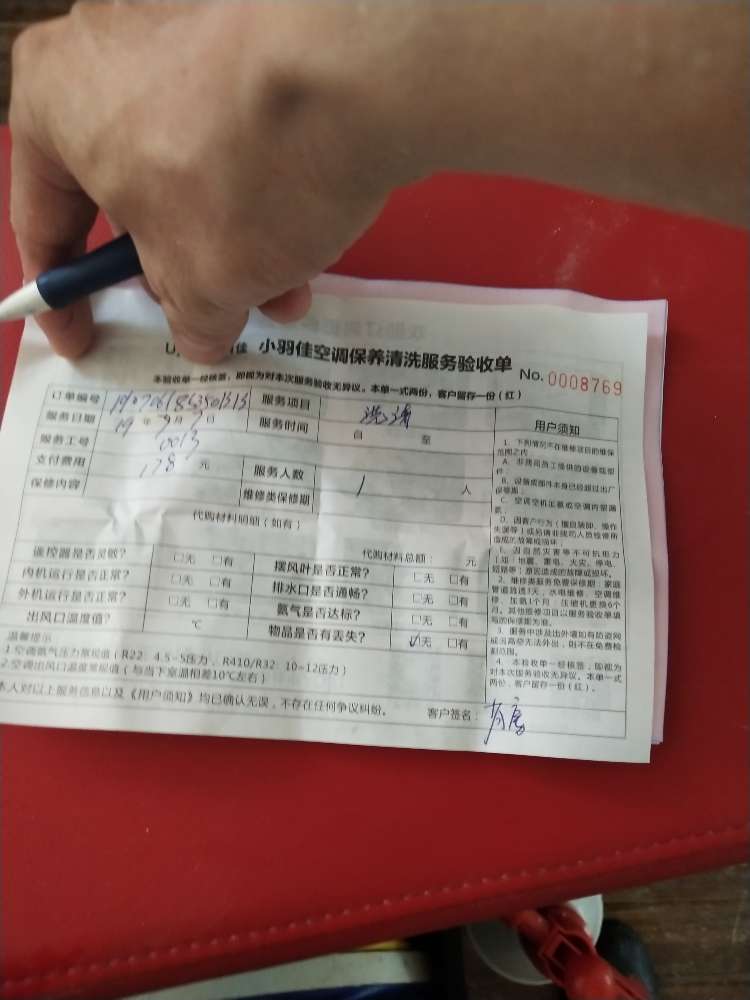 佳 小羽佳空调保养清洗服务验收单
No. 0008769
本验收单一经核签，即视为对本次服务验收无异议。本单一式两份，客户留存一份（红）
订单编号 服务项目 用户须知
服务日期 19 年 月 日 服务时间 自 至
服务工号 0013
支付费用 178 元 服务人数 1 人
保修内容 维修类保修期
代购材料明细（如有）
代购材料总额： 元
遥控器是否灵敏？ □无 □有 摆风叶是否正常？ □无 □有
内机运行是否正常？ □无 □有 排水口是否通畅？ □无 □有
外机运行是否正常？ □无 □有 氨气是否达标？ □无 □有
出风口温度值？ ℃ 物品是否有丢失？ ☑无 □有
1、下列情况不在维修项目的维保范围之内：
A、非我司员工提供的设备或部件；
B、设备或部件本身已经超过出厂保修期；
D、因客户行为（擅自装卸、操作失误等）或另请非我司人员检修所造成的故障或损坏；
E、因自然灾害等不可抗拒力
2、维修类服务免费保修期：家庭管道疏通3天，水电维修、空调维修、加氨1个月；压缩机更换6个月。其他维修项目以服务验收单填写的保修期为准。
3、服务中涉及出外墙如有防盗网或因高空无法外出，则不在免费检
4、本验收单一经核签，即视为对本次服务验收无异议。本单一式两份，客户留存一份（红）。
温馨提示：
1.空调氨气压力常规值（R22：4.5~5压力、R410/R32：10~12压力）
2.空调出风口温度常规值（与当下室温相差10℃左右）
本人对以上服务信息以及《用户须知》均已确认无误，不存在任何争议纠纷。 客户签名：